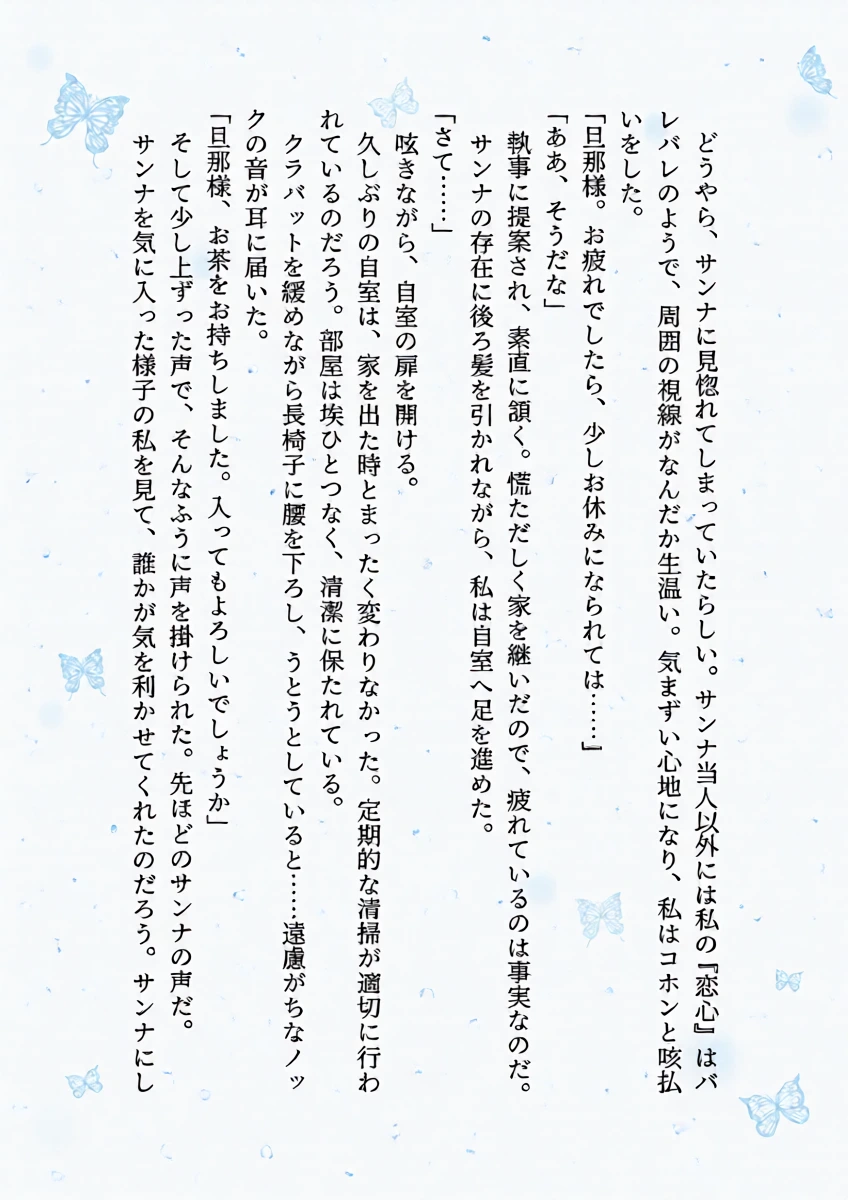 どうやら、サンナに見惚れてしまっていたらしい。サンナ当人以外には私の『恋心』はバ
レバレのようで、周囲の視線がなんだか生温い。気まずい心地になり、私はコホンと咳払
いをした。
「旦那様。お疲れでしたら、少しお休みになられては……』
「ああ、そうだな」
執事に提案され、素直に頷く。慌ただしく家を継いだので、疲れているのは事実なのだ。
サンナの存在に後ろ髪を引かれながら、私は自室へ足を進めた。
「さて……」
呟きながら、自室の扉を開ける。
久しぶりの自室は、家を出た時とまったく変わりなかった。定期的な清掃が適切に行わ
れているのだろう。部屋は埃ひとつなく、清潔に保たれている。
クラバットを緩めながら長椅子に腰を下ろし、うとうとしていると……遠慮がちなノッ
クの音が耳に届いた。
「旦那様、お茶をお持ちしました。入ってもよろしいでしょうか」
そして少し上ずった声で、そんなふうに声を掛けられた。先ほどのサンナの声だ。
サンナを気に入った様子の私を見て、誰かが気を利かせてくれたのだろう。サンナにし